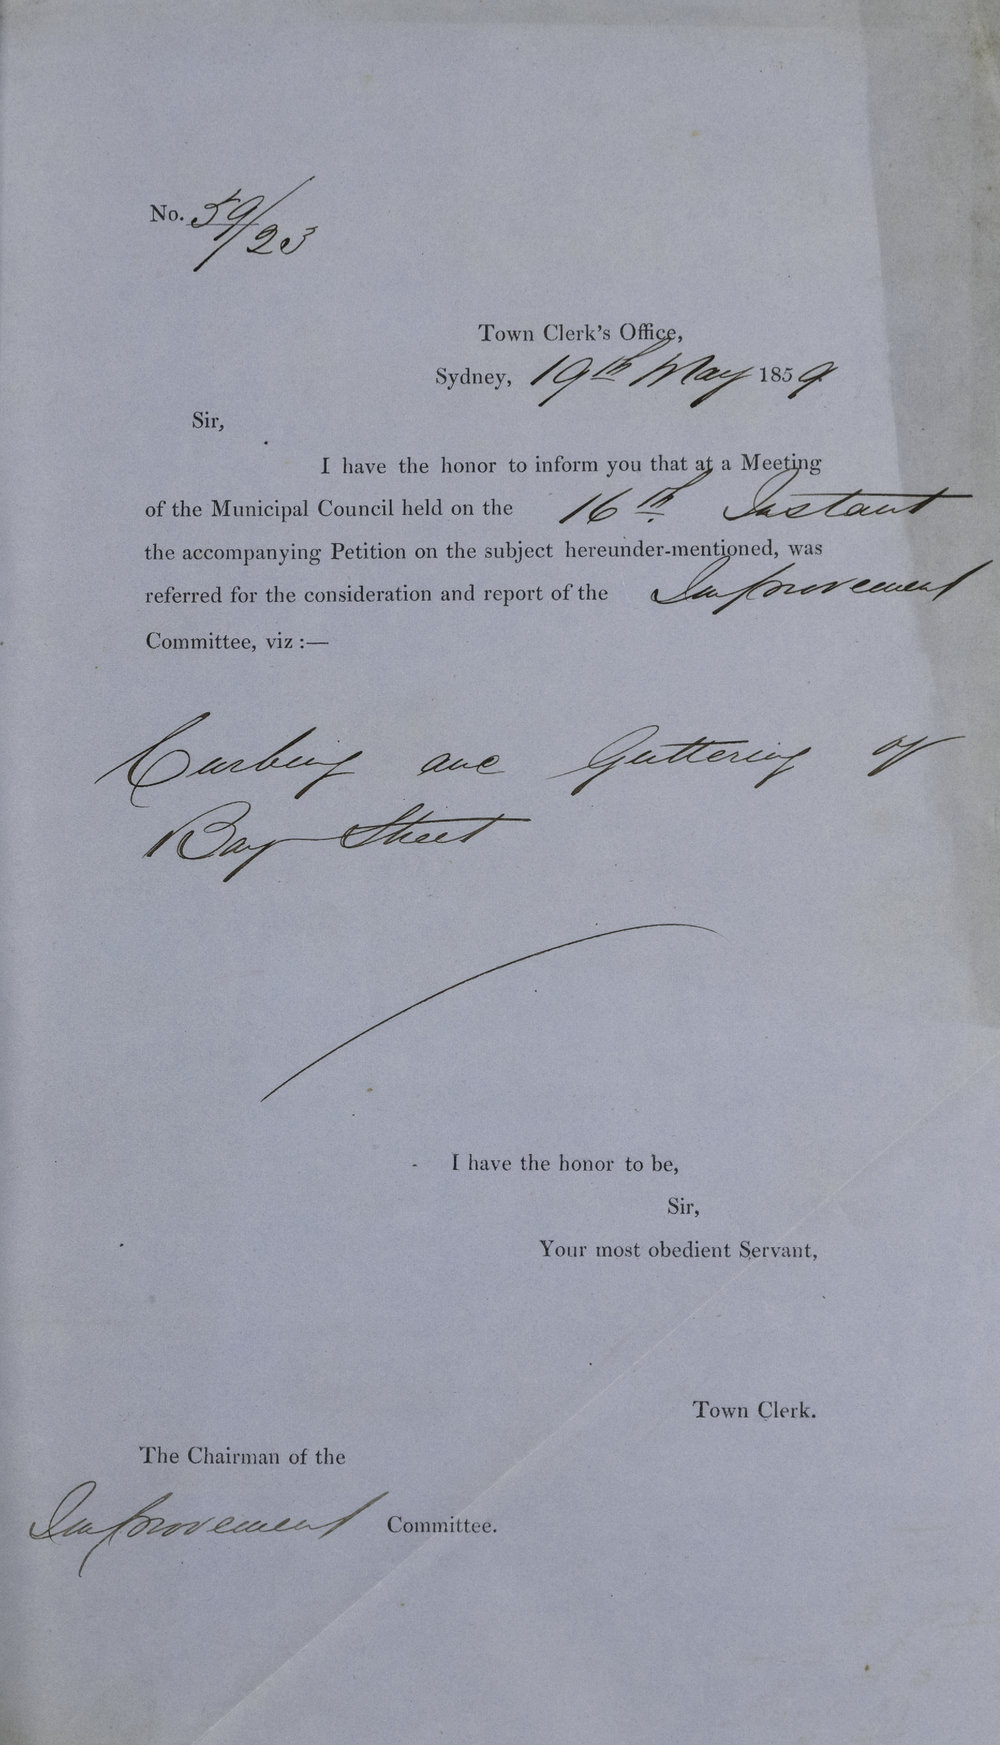 No. 59/23
Town Clerk's Office,
Sydney, 19th May 1859
Sir,
I have the honor to inform you that at a Meeting
of the Municipal Council held on the 16th Instant
the accompanying Petition on the subject hereunder-mentioned, was
referred for the consideration and report of the Improvement
Committee, viz :—
Curbing and Guttering of
Bay Street
I have the honor to be,
Sir,
Your most obedient Servant,
Town Clerk.
The Chairman of the
Improvement Committee.